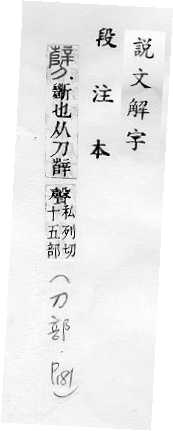 説文解字
段注本
斷也从刀辥聲
私列切
十五部
(刀部.P181)